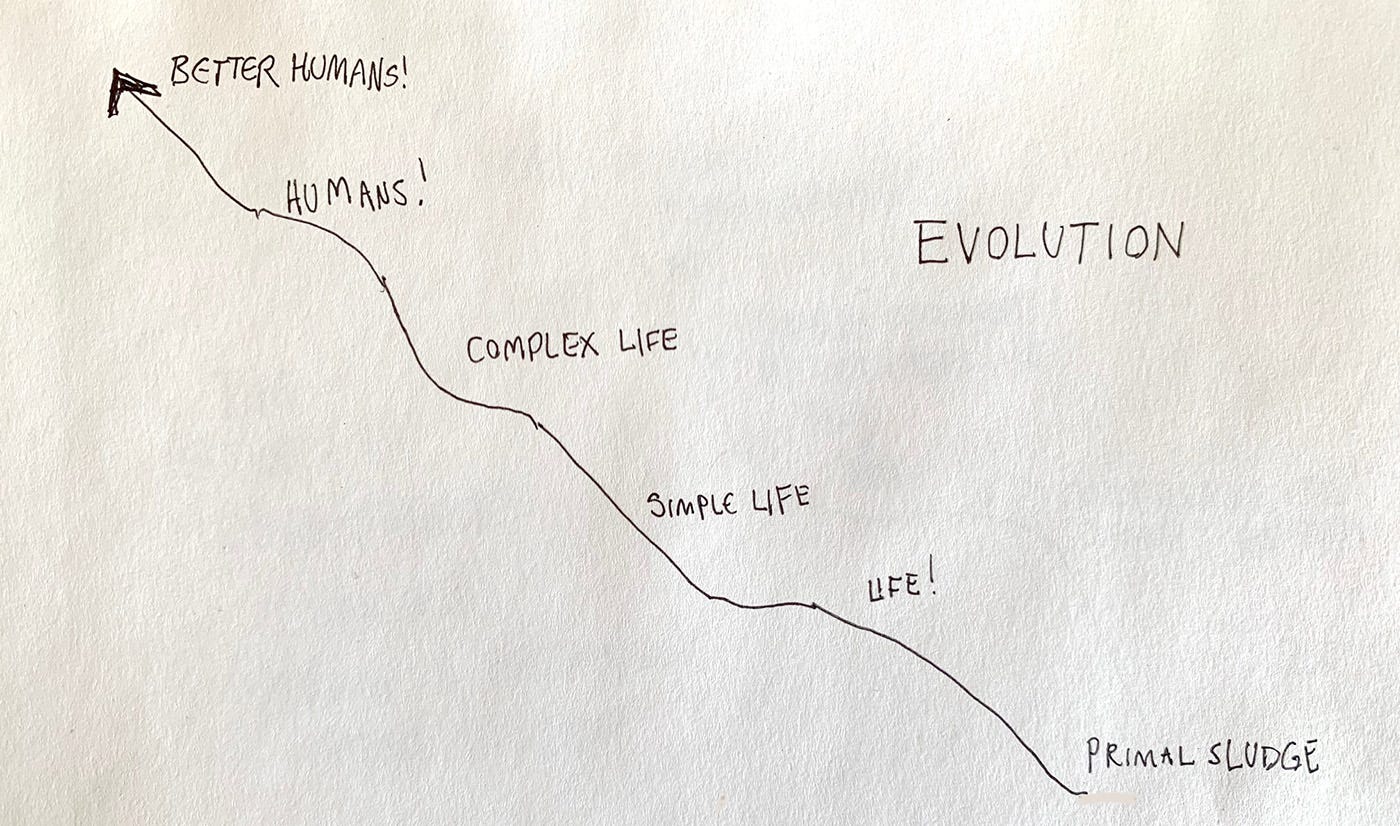 BETTER HUMANS!
HUMANS!
EVOLUTION
COMPLEX LIFE
SIMPLE LIFE
LIFE!
PRIMAL SLUDGE